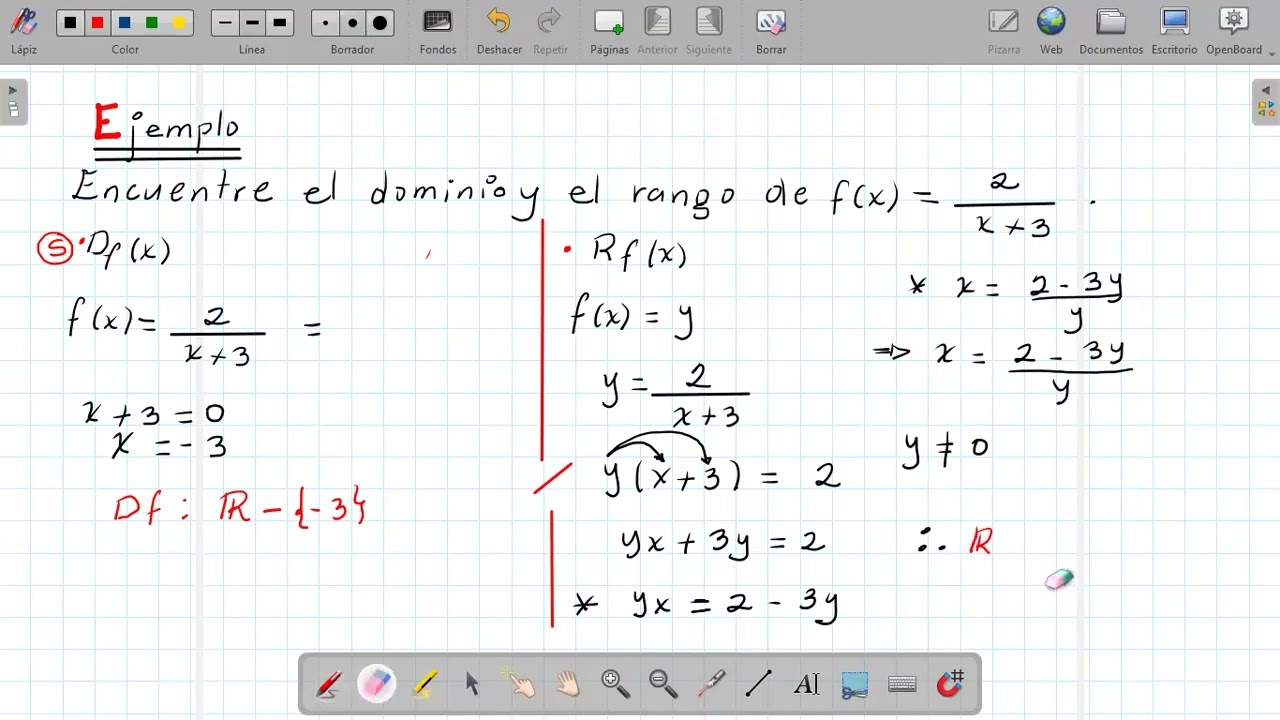 Lápiz Color Línea Borrador Fondos Deshacer Repetir Páginas Anterior Siguiente Borrar Pizarra Web Documentos Escritorio OpenBoard
Ejemplo
Encuentre el dominio y el rango de f(x) = 2/(x+3) .
S • Df(x)
f(x) = 2/(x+3) =
x + 3 = 0
x = -3
Df : ℝ - {-3}
• Rf(x)
f(x) = y
y = 2/(x+3)
y(x+3) = 2
yx + 3y = 2
* yx = 2 - 3y
* x = (2 - 3y)/y
⇒ x = (2 - 3y)/y
y ≠ 0
∴ ℝ
AI